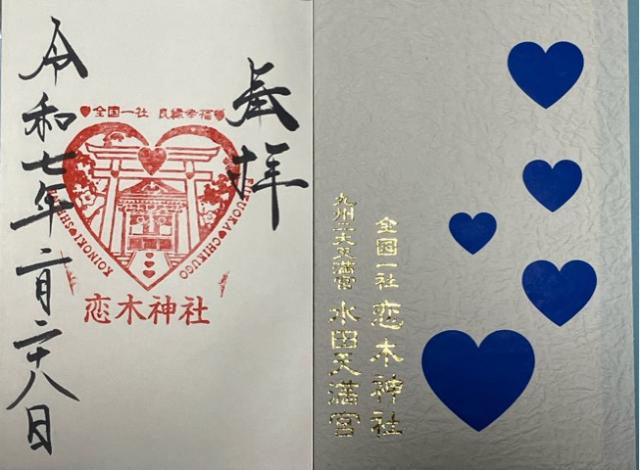 奉拝
♥全国一社 良縁幸福♥
KOINOKI♥SH
FUKUOKA♥CHIKUGO
恋木神社
令和七年二月二十八日
全国一社 恋木神社
九州二大天満宮 水田天満宮